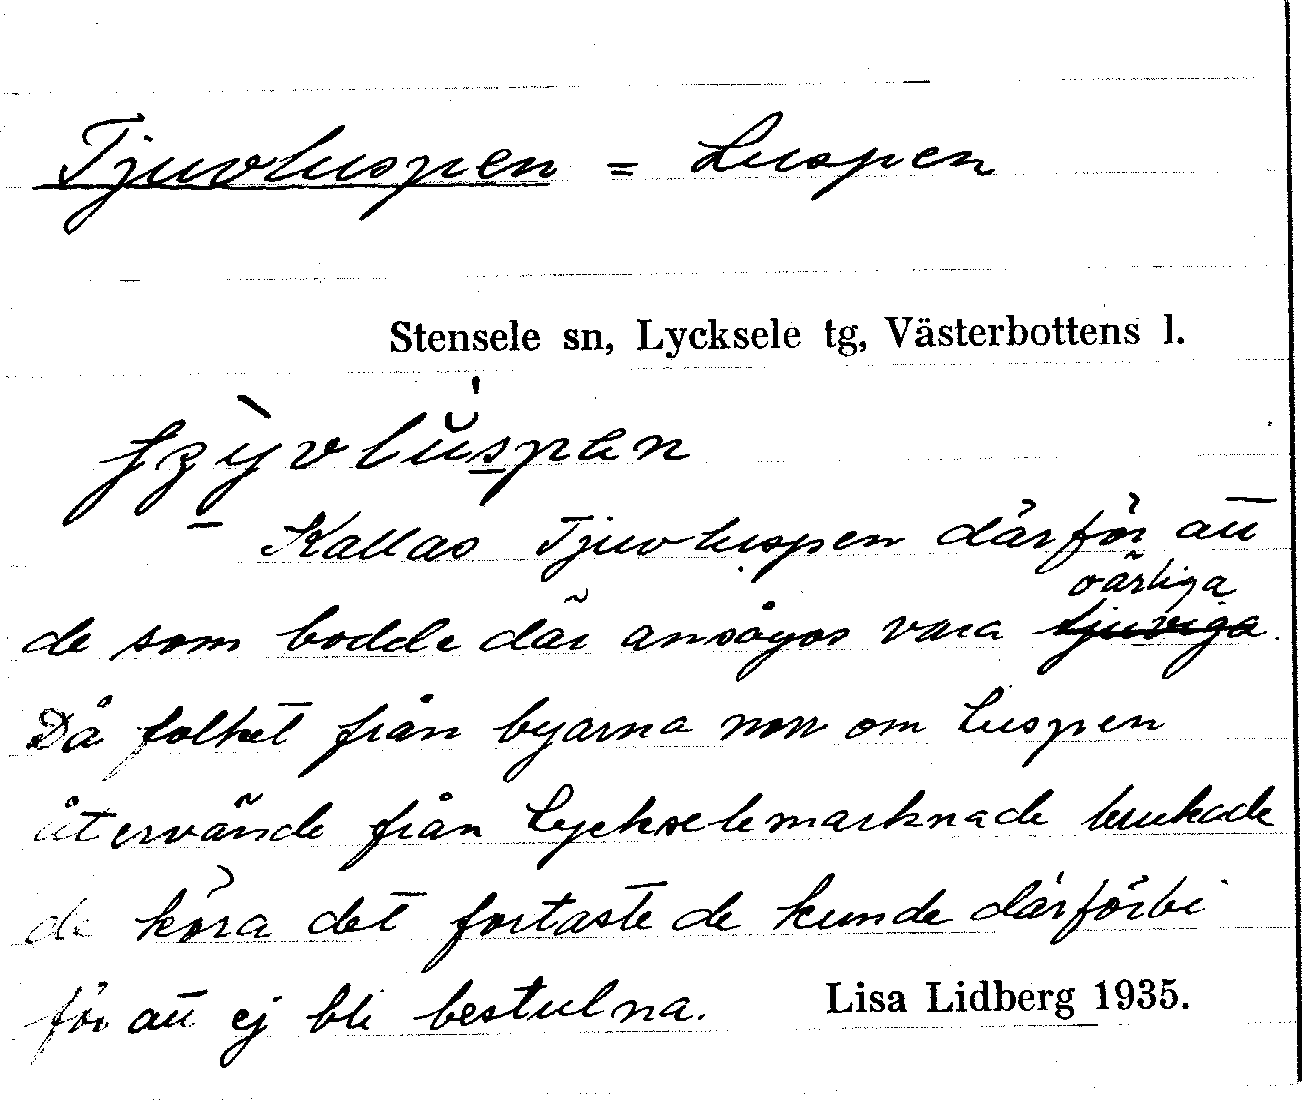 Tjuvluspen = Luspen
Stensele sn, Lycksele tg, Västerbottens l.
Kallas Tjuvluspen därför att
oärliga
de som bodde där ansågos vara tjuviga.
Då folket från byarna norr om Luspen
återvände från Lyckselemarknade brukade
de köra det fortaste de kunde därförbi
för att ej bli bestulna.
Lisa Lidberg 1935.